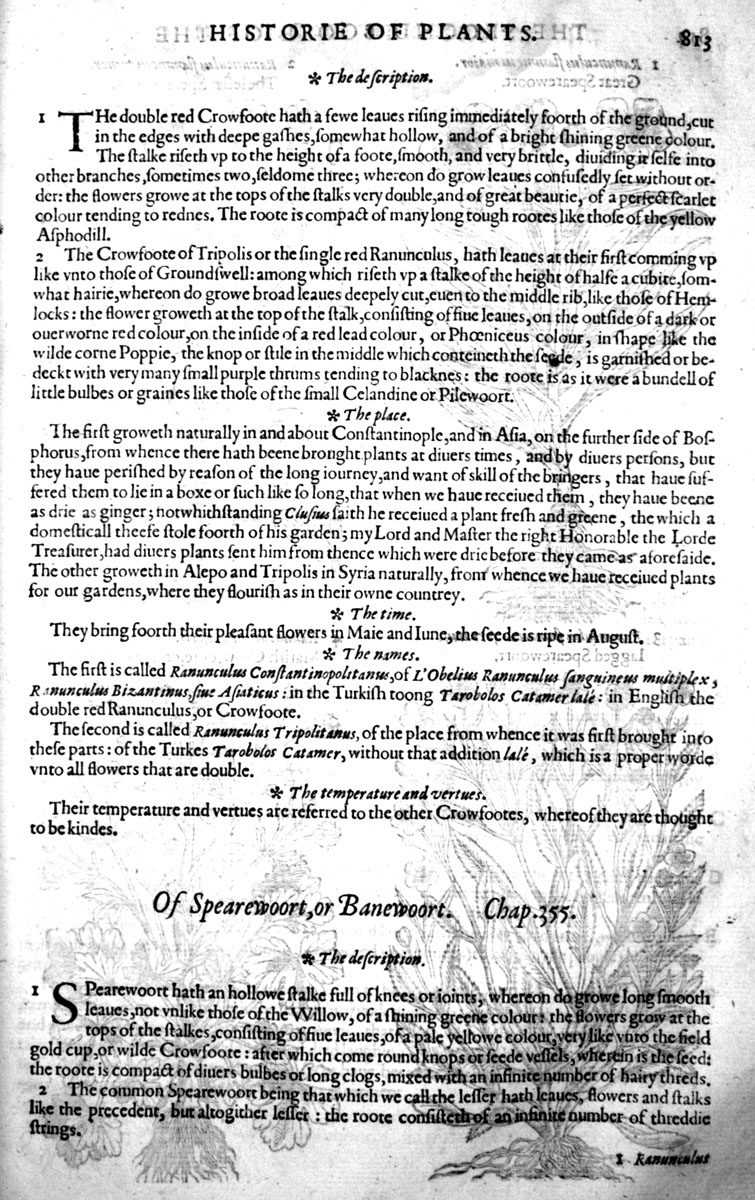 HISTORIE OF PLANTS. 813
✻ The deſcription.
1 THe double red Crowfoote hath a fewe leaues riſing immediately foorth of the ground, cut
in the edges with deepe gaſhes, ſomewhat hollow, and of a bright ſhining greene colour.
The ſtalke riſeth vp to the height of a foote, ſmooth, and very brittle, diuiding it ſelfe into
other branches, ſometimes two, ſeldome three; whereon do grow leaues confuſedly ſet without or-
der: the flowers growe at the tops of the ſtalks very double, and of great beautie, of a perfect ſcarlet
colour tending to rednes. The roote is compact of many long tough rootes like thoſe of the yellow
Aſphodill.
2 The Crowfoote of Tripolis or the ſingle red Ranunculus, hath leaues at their firſt comming vp
like vnto thoſe of Groundſwell: among which riſeth vp a ſtalke of the height of halfe a cubite, ſom-
what hairie, whereon do growe broad leaues deepely cut, euen to the middle rib, like thoſe of Hem-
locks: the flower groweth at the top of the ſtalk, conſiſting of fiue leaues, on the outſide of a dark or
ouerworne red colour, on the inſide of a red lead colour, or Phœniceus colour, in ſhape like the
wilde corne Poppie, the knop or ſtile in the middle which conteineth the ſeede, is garniſhed or be-
deckt with very many ſmall purple thrums tending to blacknes: the roote is as it were a bundell of
little bulbes or graines like thoſe of the ſmall Celandine or Pilewoort.
✻ The place.
The firſt groweth naturally in and about Conſtantinople, and in Aſia, on the further ſide of Boſ-
phorus, from whence there hath beene bronght plants at diuers times, and by diuers perſons, but
they haue periſhed by reaſon of the long iourney, and want of skill of the bringers, that haue ſuf-
fered them to lie in a boxe or ſuch like ſo long, that when we haue receiued them, they haue beene
as drie as ginger; notwhithſtanding Cluſius ſaith he receiued a plant freſh and greene, the which a
domeſticall theefe ſtole foorth of his garden; my Lord and Maſter the right Honorable the Lorde
Treaſurer, had diuers plants ſent him from thence which were drie before they came as aforeſaide.
The other groweth in Alepo and Tripolis in Syria naturally, from whence we haue receiued plants
for our gardens, where they flouriſh as in their owne countrey.
✻ The time.
They bring foorth their pleaſant flowers in Maie and Iune, the ſeede is ripe in Auguſt.
✻ The names.
The firſt is called Ranunculus Conſtantinopolitanus, of L'Obelius Ranunculus ſanguineus multiplex,
Ranunculus Bizantinus, ſiue Aſiaticus: in the Turkiſh toong Tarobolos Catamer lalé: in Engliſh the
double red Ranunculus, or Crowfoote.
The ſecond is called Ranunculus Tripolitanus, of the place from whence it was firſt brought into
theſe parts: of the Turkes Tarobolos Catamer, without that addition lalé, which is a proper worde
vnto all flowers that are double.
✻ The temperature and vertues.
Their temperature and vertues are referred to the other Crowfootes, whereof they are thought
to be kindes.
Of Spearewoort, or Banewoort. Chap. 355.
✻ The deſcription.
1 SPearewoort hath an hollowe ſtalke full of knees or ioints, whereon do growe long ſmooth
leaues, not vnlike thoſe of the Willow, of a ſhining greene colour: the flowers grow at the
tops of the ſtalkes, conſiſting of fiue leaues, of a pale yellowe colour, very like vnto the field
gold cup, or wilde Crowfoote: after which come round knops or ſeede veſſels, wherein is the ſeed:
the roote is compact of diuers bulbes or long clogs, mixed with an infinite number of hairy threds.
2 The common Spearewoort being that which we call the leſſer hath leaues, flowers and ſtalks
like the precedent, but altogither leſſer: the roote conſiſteth of an infinite number of threddie
ſtrings.
1 Ranunculus